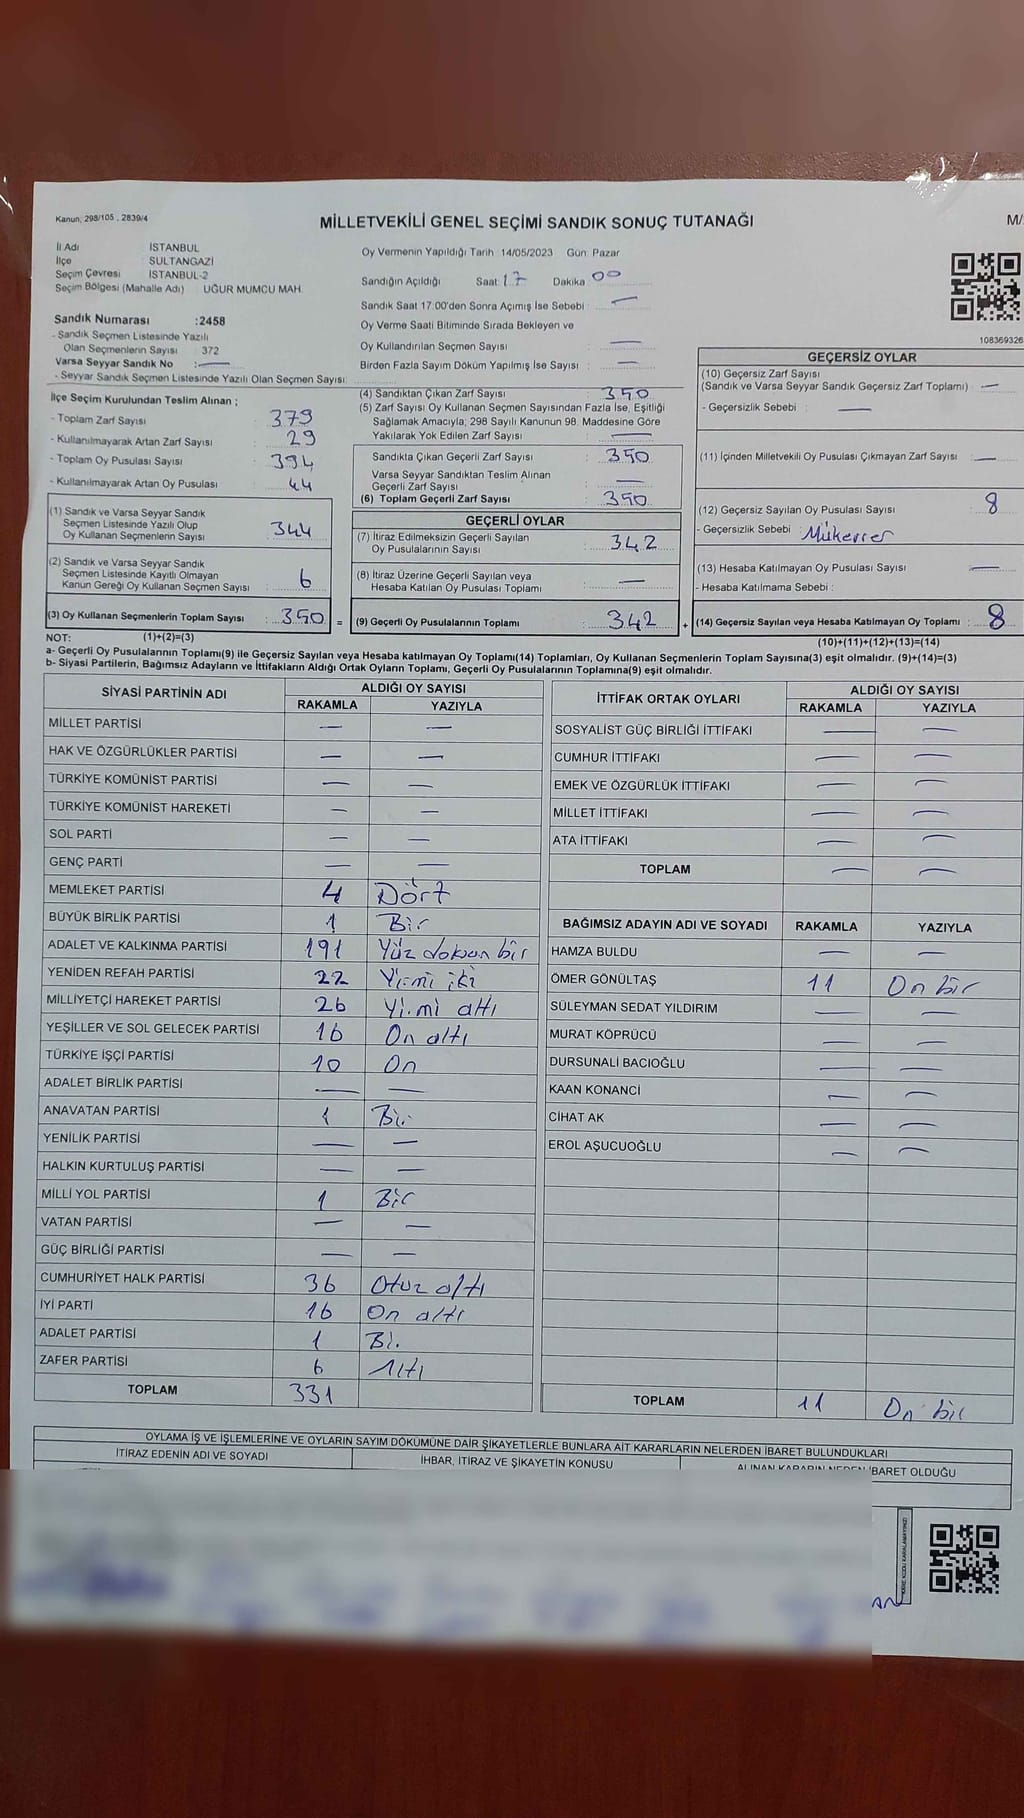 Kanun; 298/105 , 2839/4
MİLLETVEKİLİ GENEL SEÇİMİ SANDIK SONUÇ TUTANAĞI
M/
İl Adı İSTANBUL
İlçe : SULTANGAZİ
Seçim Çevresi : İSTANBUL-2
Seçim Bölgesi (Mahalle Adı) : UĞUR MUMCU MAH.
Sandık Numarası :2458
- Sandık Seçmen Listesinde Yazılı
Olan Seçmenlerin Sayısı : 372
Varsa Seyyar Sandık No : —
- Seyyar Sandık Seçmen Listesinde Yazılı Olan Seçmen Sayısı:
Oy Vermenin Yapıldığı Tarih :14/05/2023 Gün: Pazar
Sandığın Açıldığı Saat: 17 Dakika: 00
Sandık Saat 17:00'den Sonra Açımış İse Sebebi : —
Oy Verme Saati Bitiminde Sırada Bekleyen ve
Oy Kullandırılan Seçmen Sayısı : —
Birden Fazla Sayım Döküm Yapılmış İse Sayısı : —
108369326
İlçe Seçim Kurulundan Teslim Alınan ;
- Toplam Zarf Sayısı : 379
- Kullanılmayarak Artan Zarf Sayısı : 29
- Toplam Oy Pusulası Sayısı : 394
- Kullanılmayarak Artan Oy Pusulası : 44
(1) Sandık ve Varsa Seyyar Sandık
Seçmen Listesinde Yazılı Olup
Oy Kullanan Seçmenlerin Sayısı : 344
(2) Sandık ve Varsa Seyyar Sandık
Seçmen Listesinde Kayıtlı Olmayan
Kanun Gereği Oy Kullanan Seçmen Sayısı : 6
(3) Oy Kullanan Seçmenlerin Toplam Sayısı : 350 =
(4) Sandıktan Çıkan Zarf Sayısı : 350
(5) Zarf Sayısı Oy Kullanan Seçmen Sayısından Fazla İse, Eşitliği
Sağlamak Amacıyla; 298 Sayılı Kanunun 98. Maddesine Göre
Yakılarak Yok Edilen Zarf Sayısı : —
Sandıkta Çıkan Geçerli Zarf Sayısı : 350
Varsa Seyyar Sandıktan Teslim Alınan
Geçerli Zarf Sayısı : —
(6) Toplam Geçerli Zarf Sayısı : 350
GEÇERLİ OYLAR
(7) İtiraz Edilmeksizin Geçerli Sayılan
Oy Pusulalarının Sayısı : 342
(8) İtiraz Üzerine Geçerli Sayılan veya
Hesaba Katılan Oy Pusulası Toplamı : —
(9) Geçerli Oy Pusulalarının Toplamı : 342 +
GEÇERSİZ OYLAR
(10) Geçersiz Zarf Sayısı
(Sandık ve Varsa Seyyar Sandık Geçersiz Zarf Toplamı) : —
- Geçersizlik Sebebi : —
(11) İçinden Milletvekili Oy Pusulası Çıkmayan Zarf Sayısı : —
(12) Geçersiz Sayılan Oy Pusulası Sayısı : 8
- Geçersizlik Sebebi : Mükerrer
(13) Hesaba Katılmayan Oy Pusulası Sayısı : —
- Hesaba Katılmama Sebebi :
(14) Geçersiz Sayılan veya Hesaba Katılmayan Oy Toplamı : 8
NOT: (1)+(2)=(3)
(10)+(11)+(12)+(13)=(14)
a- Geçerli Oy Pusulalarının Toplamı(9) ile Geçersiz Sayılan veya Hesaba katılmayan Oy Toplamı(14) Toplamları, Oy Kullanan Seçmenlerin Toplam Sayısına(3) eşit olmalıdır. (9)+(14)=(3)
b- Siyasi Partilerin, Bağımsız Adayların ve İttifakların Aldığı Ortak Oyların Toplamı, Geçerli Oy Pusulalarının Toplamına(9) eşit olmalıdır.
SİYASİ PARTİNİN ADI ALDIĞI OY SAYISI
RAKAMLA YAZIYLA
MİLLET PARTİSİ — —
HAK VE ÖZGÜRLÜKLER PARTİSİ — —
TÜRKİYE KOMÜNİST PARTİSİ — —
TÜRKİYE KOMÜNİST HAREKETİ — —
SOL PARTİ — —
GENÇ PARTİ — —
MEMLEKET PARTİSİ 4 Dört
BÜYÜK BİRLİK PARTİSİ 1 Bir
ADALET VE KALKINMA PARTİSİ 191 Yüz doksan bir
YENİDEN REFAH PARTİSİ 22 Yirmi iki
MİLLİYETÇİ HAREKET PARTİSİ 26 Yirmi altı
YEŞİLLER VE SOL GELECEK PARTİSİ 16 On altı
TÜRKİYE İŞÇİ PARTİSİ 10 On
ADALET BİRLİK PARTİSİ — —
ANAVATAN PARTİSİ 1 Bir
YENİLİK PARTİSİ — —
HALKIN KURTULUŞ PARTİSİ — —
MİLLİ YOL PARTİSİ 1 Bir
VATAN PARTİSİ — —
GÜÇ BİRLİĞİ PARTİSİ — —
CUMHURİYET HALK PARTİSİ 36 Otuz altı
İYİ PARTİ 16 On altı
ADALET PARTİSİ 1 Bir
ZAFER PARTİSİ 6 Altı
TOPLAM 331
İTTİFAK ORTAK OYLARI ALDIĞI OY SAYISI
RAKAMLA YAZIYLA
SOSYALİST GÜÇ BİRLİĞİ İTTİFAKI — —
CUMHUR İTTİFAKI — —
EMEK VE ÖZGÜRLÜK İTTİFAKI — —
MİLLET İTTİFAKI — —
ATA İTTİFAKI — —
TOPLAM — —
BAĞIMSIZ ADAYIN ADI VE SOYADI RAKAMLA YAZIYLA
HAMZA BULDU — —
ÖMER GÖNÜLTAŞ 11 On bir
SÜLEYMAN SEDAT YILDIRIM — —
MURAT KÖPRÜCÜ — —
DURSUNALİ BACIOĞLU — —
KAAN KONANCİ — —
CİHAT AK — —
EROL AŞUCUOĞLU — —
TOPLAM 11 On bir
OYLAMA İŞ VE İŞLEMLERİNE VE OYLARIN SAYIM DÖKÜMÜNE DAİR ŞİKAYETLERLE BUNLARA AİT KARARLARIN NELERDEN İBARET BULUNDUKLARI
İTİRAZ EDENİN ADI VE SOYADI İHBAR, İTİRAZ VE ŞİKAYETİN KONUSU ALINAN KARARIN NEDEN İBARET OLDUĞU